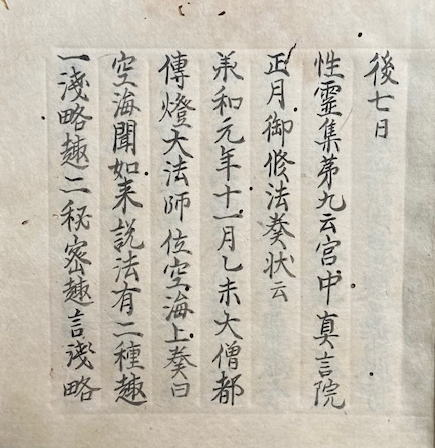 後七日
性霊集第九云宮中真言院
正月御修法奏状云
承和元年十一月乙未大僧都
傳燈大法師位空海上奏曰
空海聞如来説法有二種趣
一淺略趣二秘密趣言淺略